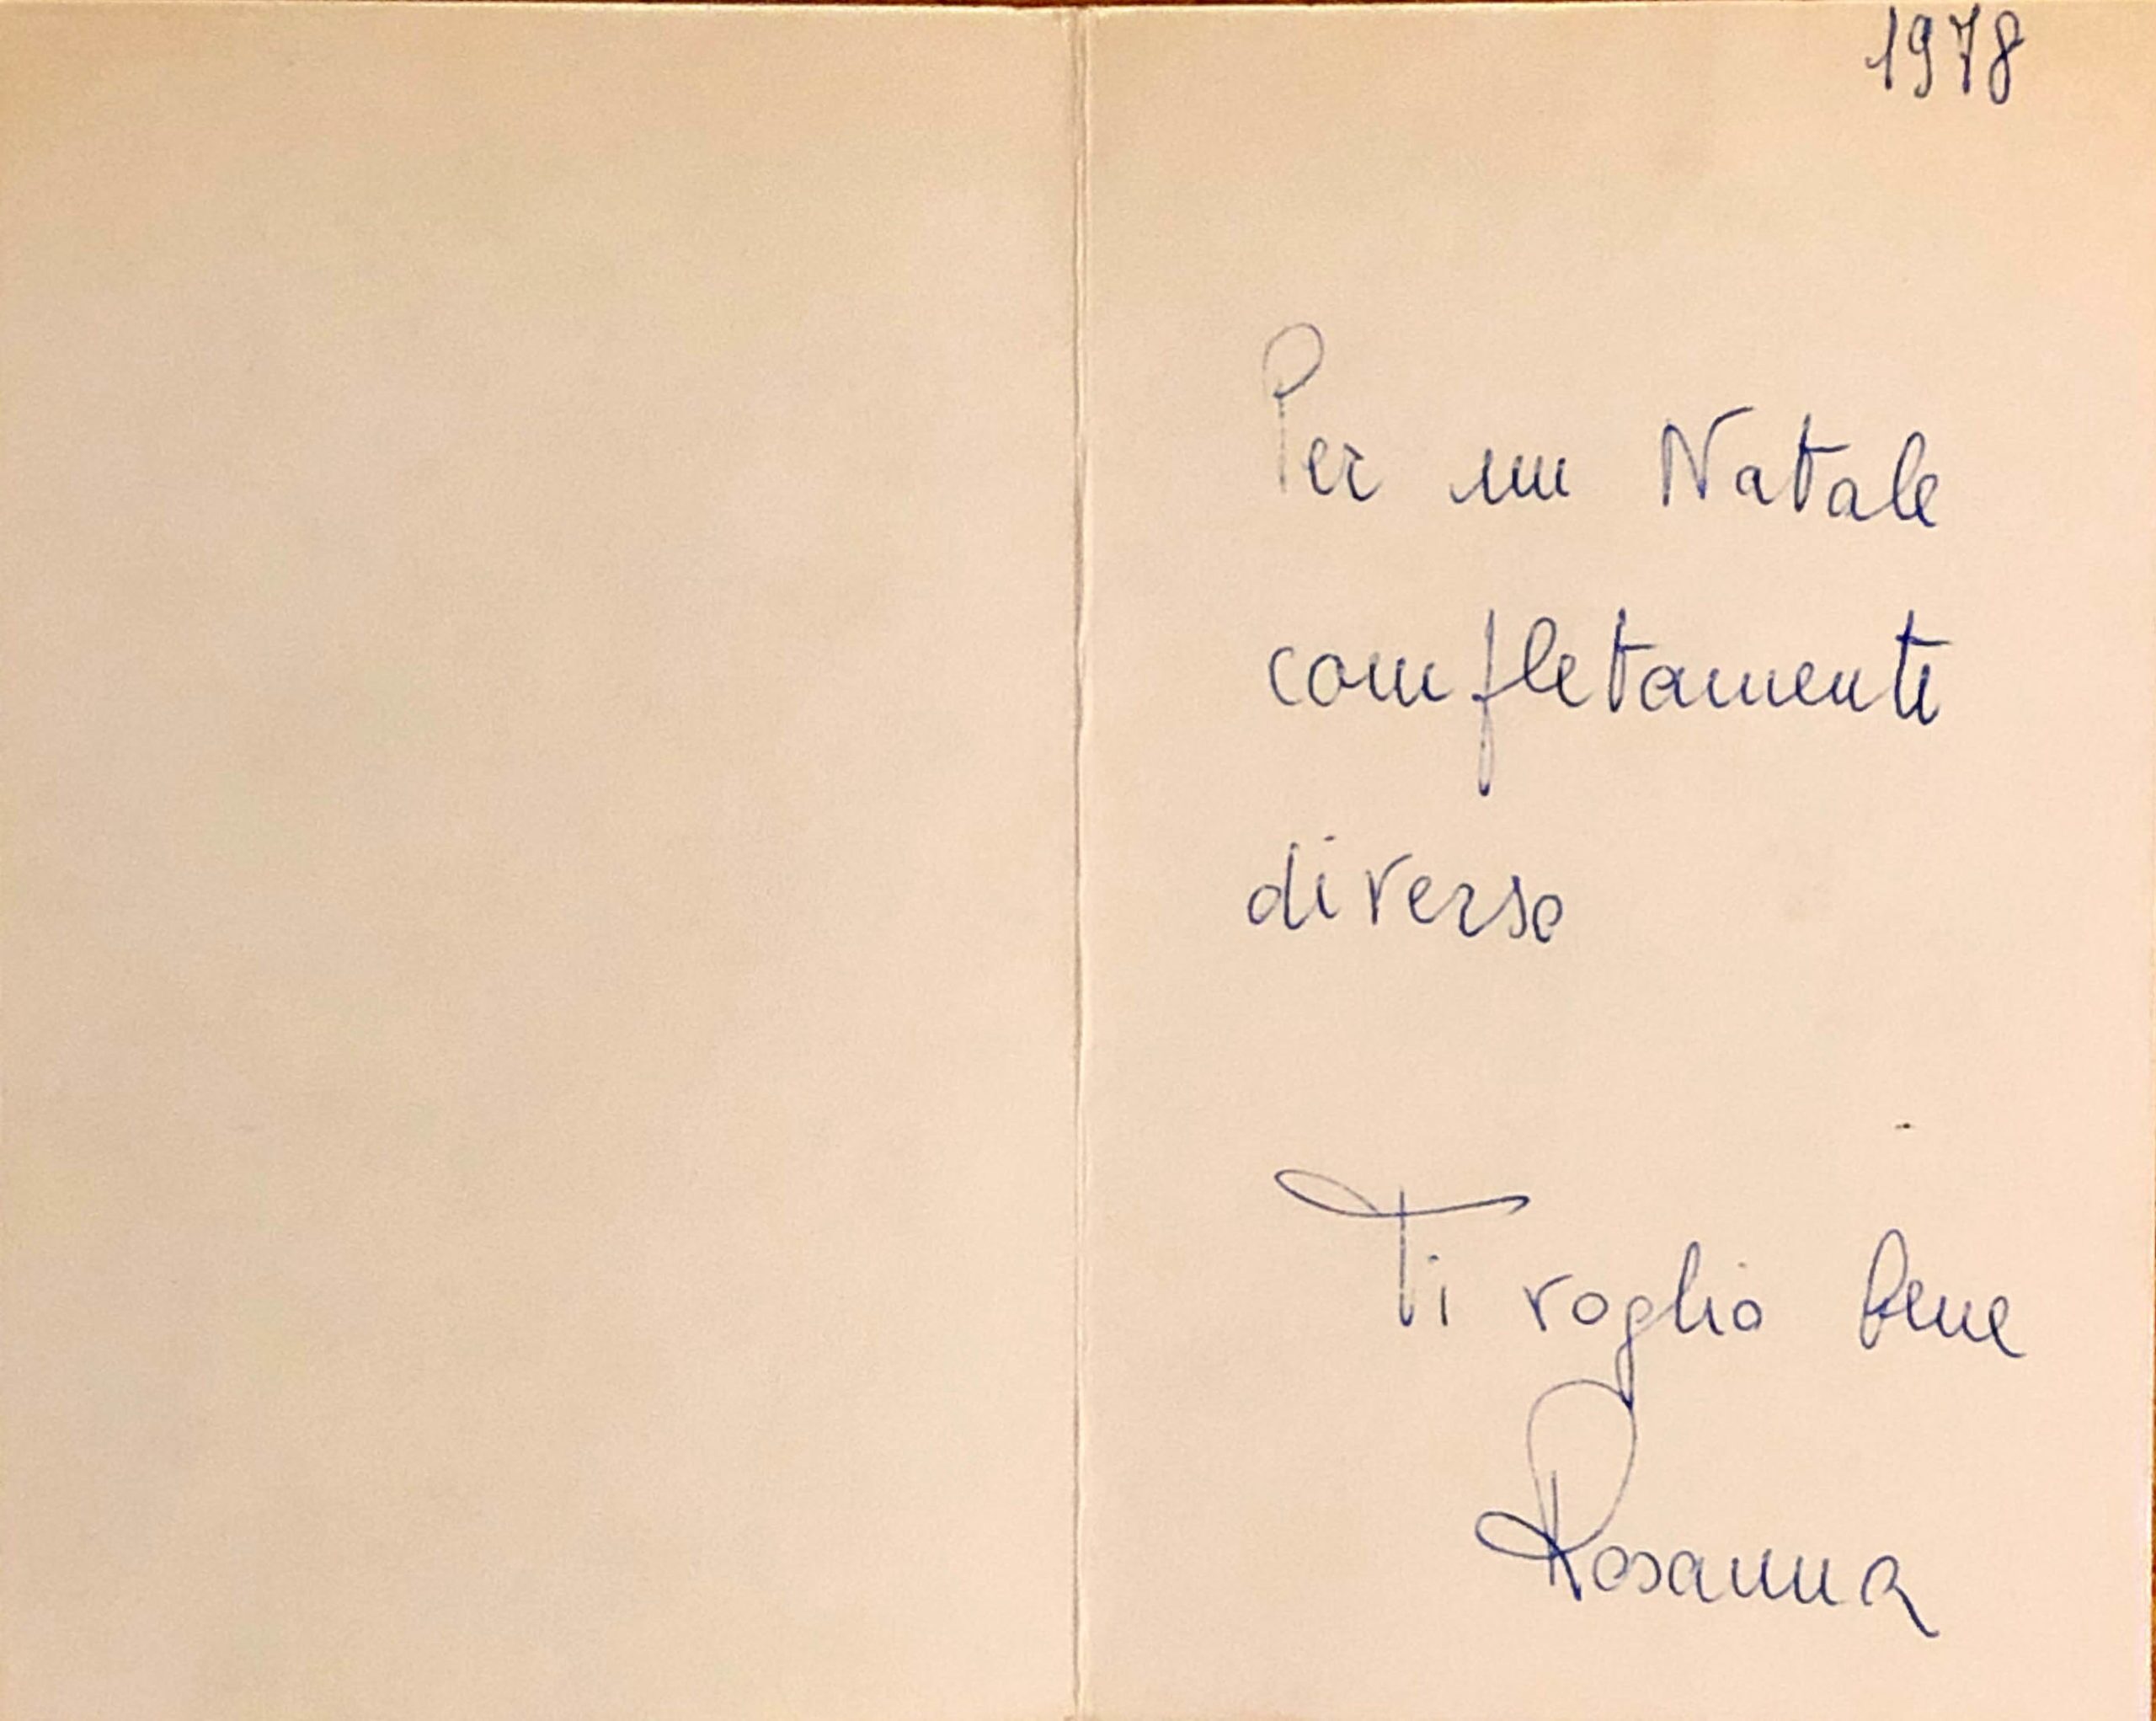 1978
Per un Natale
completamente
diverso
Ti voglio bene
Rosanna